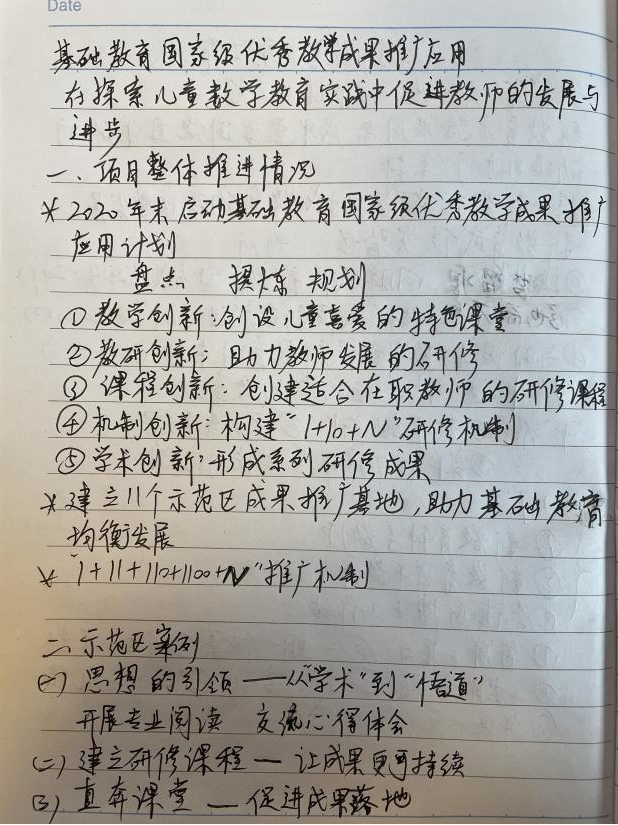 Date
基础教育国家级优秀教学成果推广应用
在探索儿童数学教育实践中促进教师的发展与
进步
一、项目整体推进情况
* 2020年末启动基础教育国家级优秀教学成果推广
应用计划
盘点 提炼 规划
①教学创新:创设儿童喜爱的特色课堂
②教研创新:助力教师发展的研修
③课程创新:创建适合在职教师的研修课程
④机制创新:构建"1+10+N"研修机制
⑤学术创新:形成系列研修成果
* 建立11个示范区成果推广基地,助力基础教育
均衡发展
* "1+11+110+1100+N"推广机制
二、示范区案例
(一)思想的引领——从"学术"到"悟道"
开展专业阅读 交流心得体会
(二)建立研修课程—让成果更可持续
(三)直奔课堂—促进成果落地